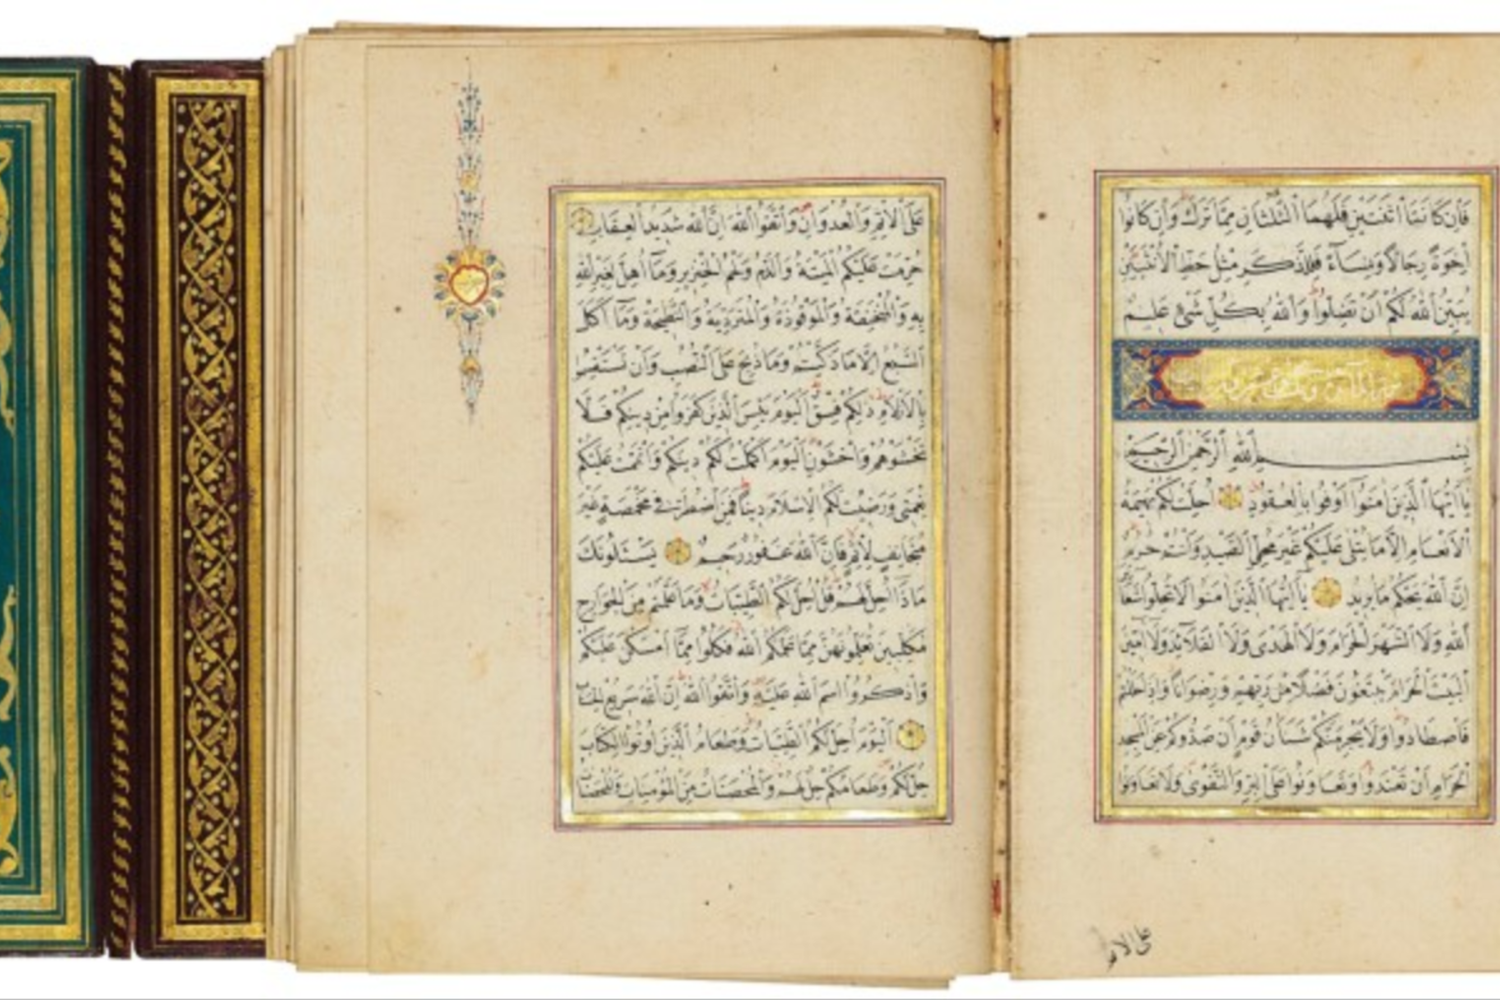 فَإِن كَانَتَا اثْنَتَيْنِ فَلَهُمَا الثُّلُثَانِ مِمَّا تَرَكَ وَإِن كَانُوا
إِخْوَةً رِجَالًا وَنِسَاءً فَلِلذَّكَرِ مِثْلُ حَظِّ الْأُنْثَيَيْنِ
يُبَيِّنُ اللَّهُ لَكُمْ أَن تَضِلُّوا وَاللَّهُ بِكُلِّ شَيْءٍ عَلِيمٌ
بِسْمِ اللَّهِ الرَّحْمَٰنِ الرَّحِيمِ
يَا أَيُّهَا الَّذِينَ آمَنُوا أَوْفُوا بِالْعُقُودِ أُحِلَّتْ لَكُمْ بَهِيمَةُ
الْأَنْعَامِ إِلَّا مَا يُتْلَىٰ عَلَيْكُمْ غَيْرَ مُحِلِّي الصَّيْدِ وَأَنْتُمْ حُرُمٌ
إِنَّ اللَّهَ يَحْكُمُ مَا يُرِيدُ يَا أَيُّهَا الَّذِينَ آمَنُوا لَا تُحِلُّوا شَعَائِرَ
اللَّهِ وَلَا الشَّهْرَ الْحَرَامَ وَلَا الْهَدْيَ وَلَا الْقَلَائِدَ وَلَا آمِّينَ
الْبَيْتَ الْحَرَامَ يَبْتَغُونَ فَضْلًا مِنْ رَبِّهِمْ وَرِضْوَانًا وَإِذَا حَلَلْتُمْ
فَاصْطَادُوا وَلَا يَجْرِمَنَّكُمْ شَنَآنُ قَوْمٍ أَنْ صَدُّوكُمْ عَنِ الْمَسْجِدِ
الْحَرَامِ أَنْ تَعْتَدُوا وَتَعَاوَنُوا عَلَى الْبِرِّ وَالتَّقْوَىٰ وَلَا تَعَاوَنُوا
على الاثم
عَلَى الْإِثْمِ وَالْعُدْوَانِ وَاتَّقُوا اللَّهَ إِنَّ اللَّهَ شَدِيدُ الْعِقَابِ
حُرِّمَتْ عَلَيْكُمُ الْمَيْتَةُ وَالدَّمُ وَلَحْمُ الْخِنْزِيرِ وَمَا أُهِلَّ لِغَيْرِ اللَّهِ
بِهِ وَالْمُنْخَنِقَةُ وَالْمَوْقُوذَةُ وَالْمُتَرَدِّيَةُ وَالنَّطِيحَةُ وَمَا أَكَلَ
السَّبُعُ إِلَّا مَا ذَكَّيْتُمْ وَمَا ذُبِحَ عَلَى النُّصُبِ وَأَنْ تَسْتَقْسِمُوا
بِالْأَزْلَامِ ذَٰلِكُمْ فِسْقٌ الْيَوْمَ يَئِسَ الَّذِينَ كَفَرُوا مِنْ دِينِكُمْ فَلَا
تَخْشَوْهُمْ وَاخْشَوْنِ الْيَوْمَ أَكْمَلْتُ لَكُمْ دِينَكُمْ وَأَتْمَمْتُ عَلَيْكُمْ
نِعْمَتِي وَرَضِيتُ لَكُمُ الْإِسْلَامَ دِينًا فَمَنِ اضْطُرَّ فِي مَخْمَصَةٍ غَيْرَ
مُتَجَانِفٍ لِإِثْمٍ فَإِنَّ اللَّهَ غَفُورٌ رَحِيمٌ يَسْئَلُونَكَ
مَاذَا أُحِلَّ لَهُمْ قُلْ أُحِلَّ لَكُمُ الطَّيِّبَاتُ وَمَا عَلَّمْتُمْ مِنَ الْجَوَارِحِ
مُكَلِّبِينَ تُعَلِّمُونَهُنَّ مِمَّا عَلَّمَكُمُ اللَّهُ فَكُلُوا مِمَّا أَمْسَكْنَ عَلَيْكُمْ
وَاذْكُرُوا اسْمَ اللَّهِ عَلَيْهِ وَاتَّقُوا اللَّهَ إِنَّ اللَّهَ سَرِيعُ الْحِسَابِ
الْيَوْمَ أُحِلَّ لَكُمُ الطَّيِّبَاتُ وَطَعَامُ الَّذِينَ أُوتُوا الْكِتَابَ
حِلٌّ لَكُمْ وَطَعَامُكُمْ حِلٌّ لَهُمْ وَالْمُحْصَنَاتُ مِنَ الْمُؤْمِنَاتِ وَالْمُحْصَنَاتُ